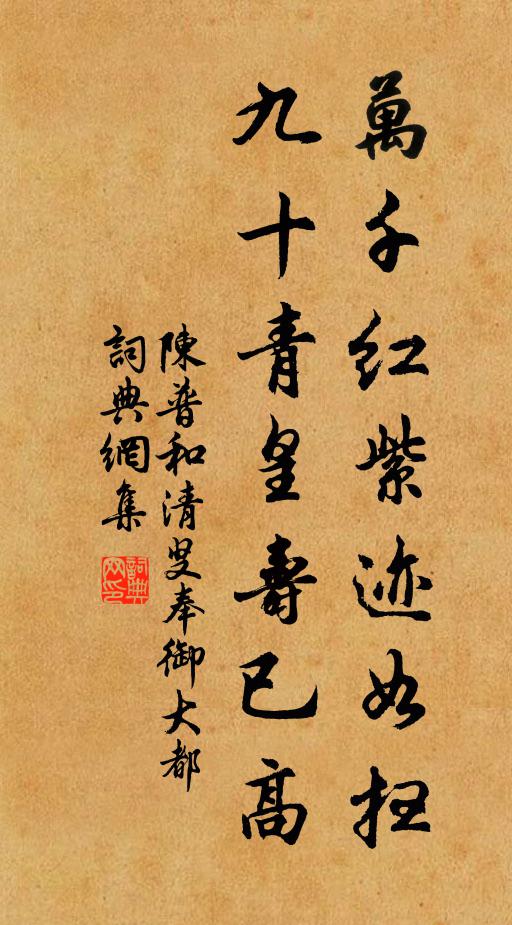 萬千红紫迹如扫
九十青皇壽已高
陳普和清叟奉御大都
詞典網集
詞典网印